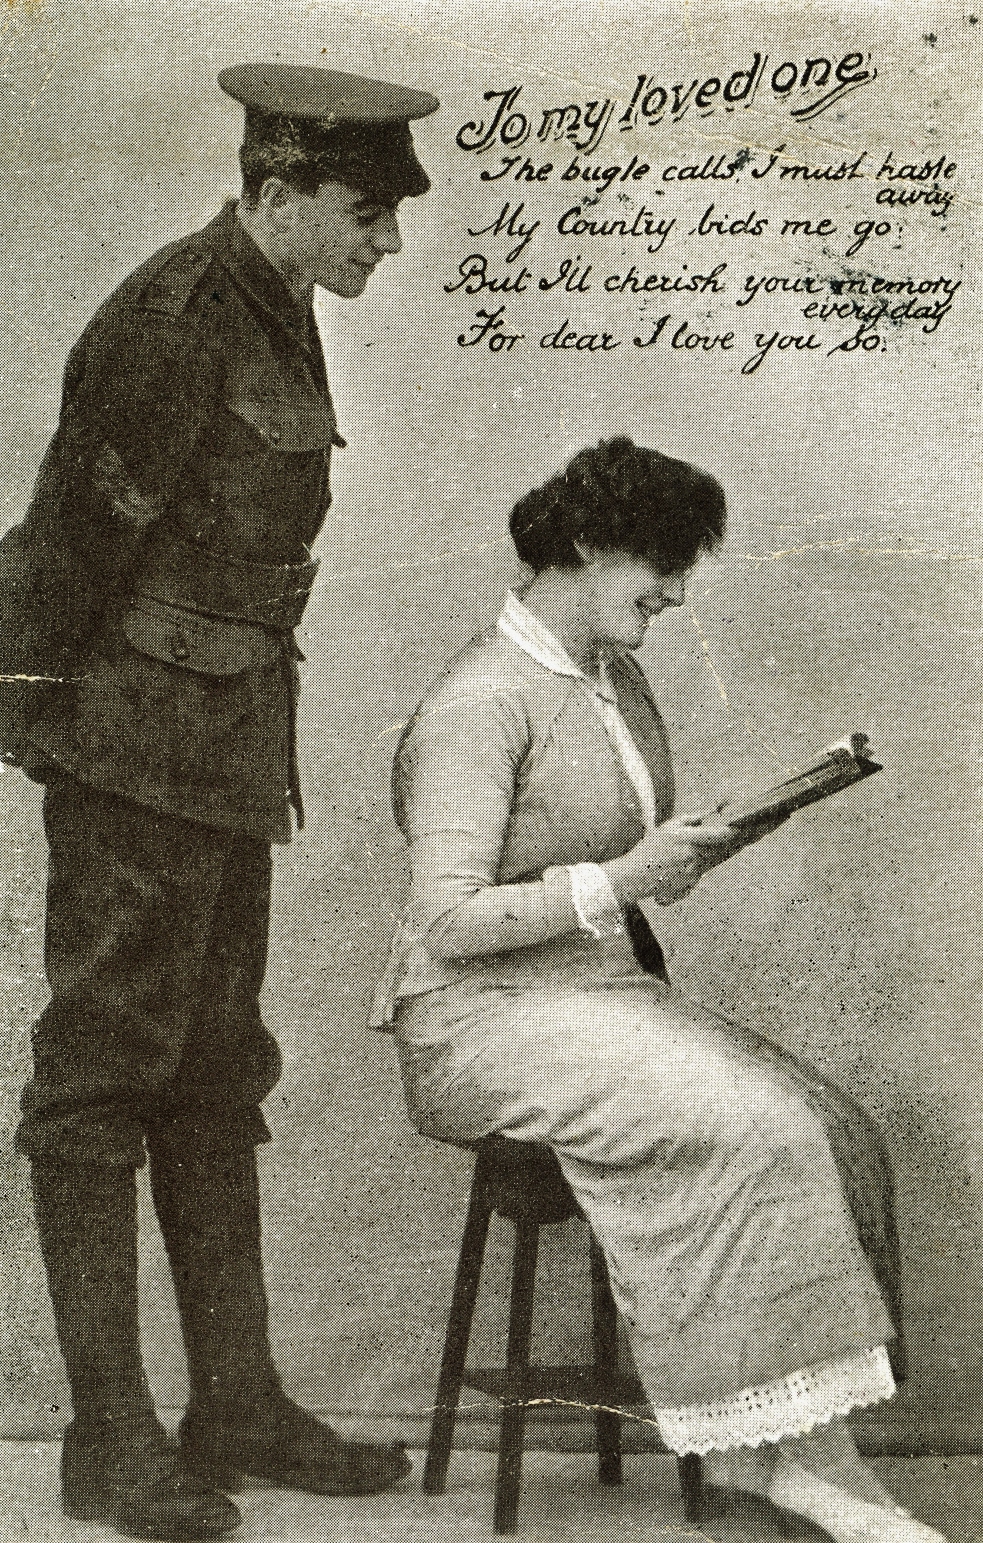 To my loved one
The bugle calls, I must haste
away
My Country bids me go.
But I'll cherish your memory
everyday
For dear I love you so.